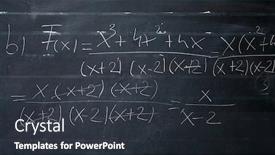 b) F(x) = x³+4x²+4x / (x+2)(x-2)(x+2) = x(x²+4 / (x+2)(x-2)
= x·(x+2)·(x+2) / (x+2)(x-2)(x+2) = x / x-2
Crystal
Templates for PowerPoint